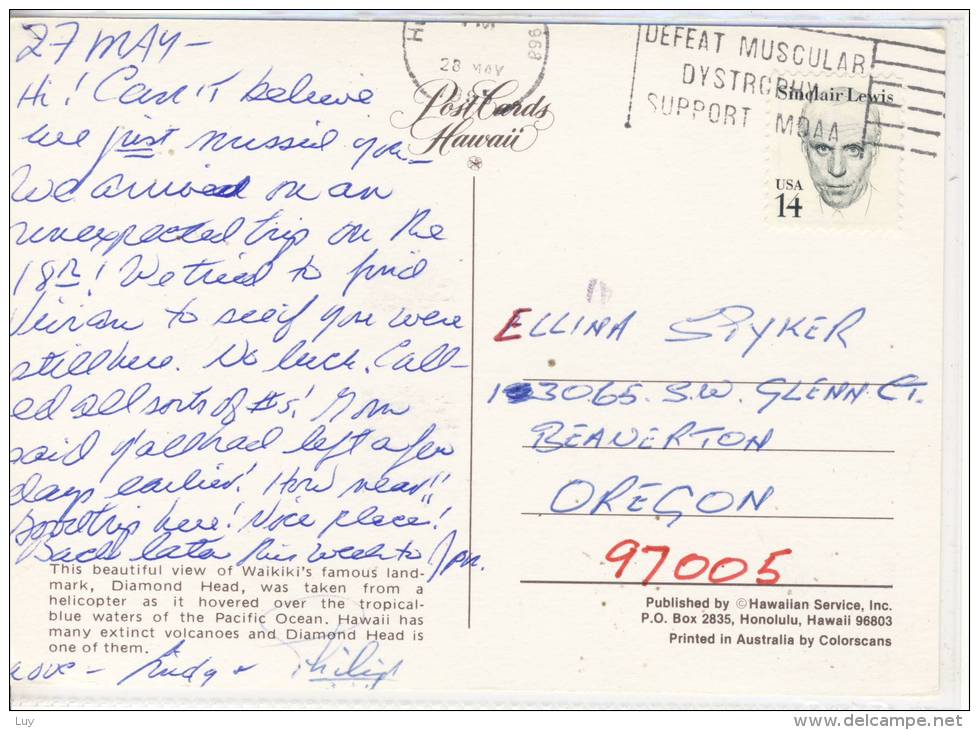 27 MAY –
Hi! Can't believe
we just missed you –
We arrived on an
unexpected trip on the
18th! We tried to find
Vivian to see if you were
still here. No luck. Call-
ed all sorts of #s! Mom
said y'all had left a few
days earlier! How near!!
Good trip here! Nice place!
Back later this week to Jpn.
This beautiful view of Waikiki's famous land-
mark, Diamond Head, was taken from a
helicopter as it hovered over the tropical-
blue waters of the Pacific Ocean. Hawaii has
many extinct volcanoes and Diamond Head is
one of them.
Love – &
Philip
PM
968
28 MAY
DEFEAT MUSCULAR
DYSTROPHY
SUPPORT MDAA
Post Cards
Hawaii
Sinclair Lewis
USA
14
ELLINA STYKER
13065. S.W. GLENN CT.
BEAVERTON
OREGON
97005
Published by © Hawaiian Service, Inc.
P.O. Box 2835, Honolulu, Hawaii 96803
Printed in Australia by Colorscans
Luy
www.delcampe.net